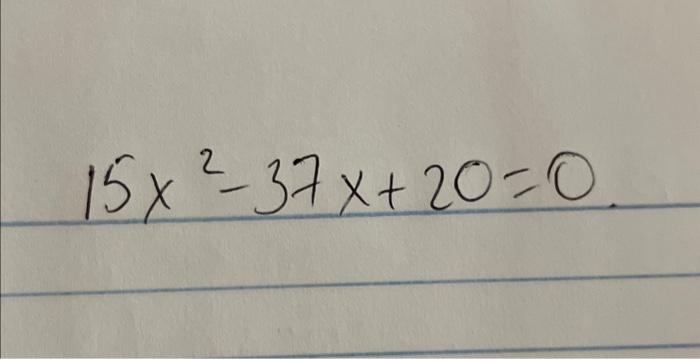 15x² - 37x + 20 = 0.